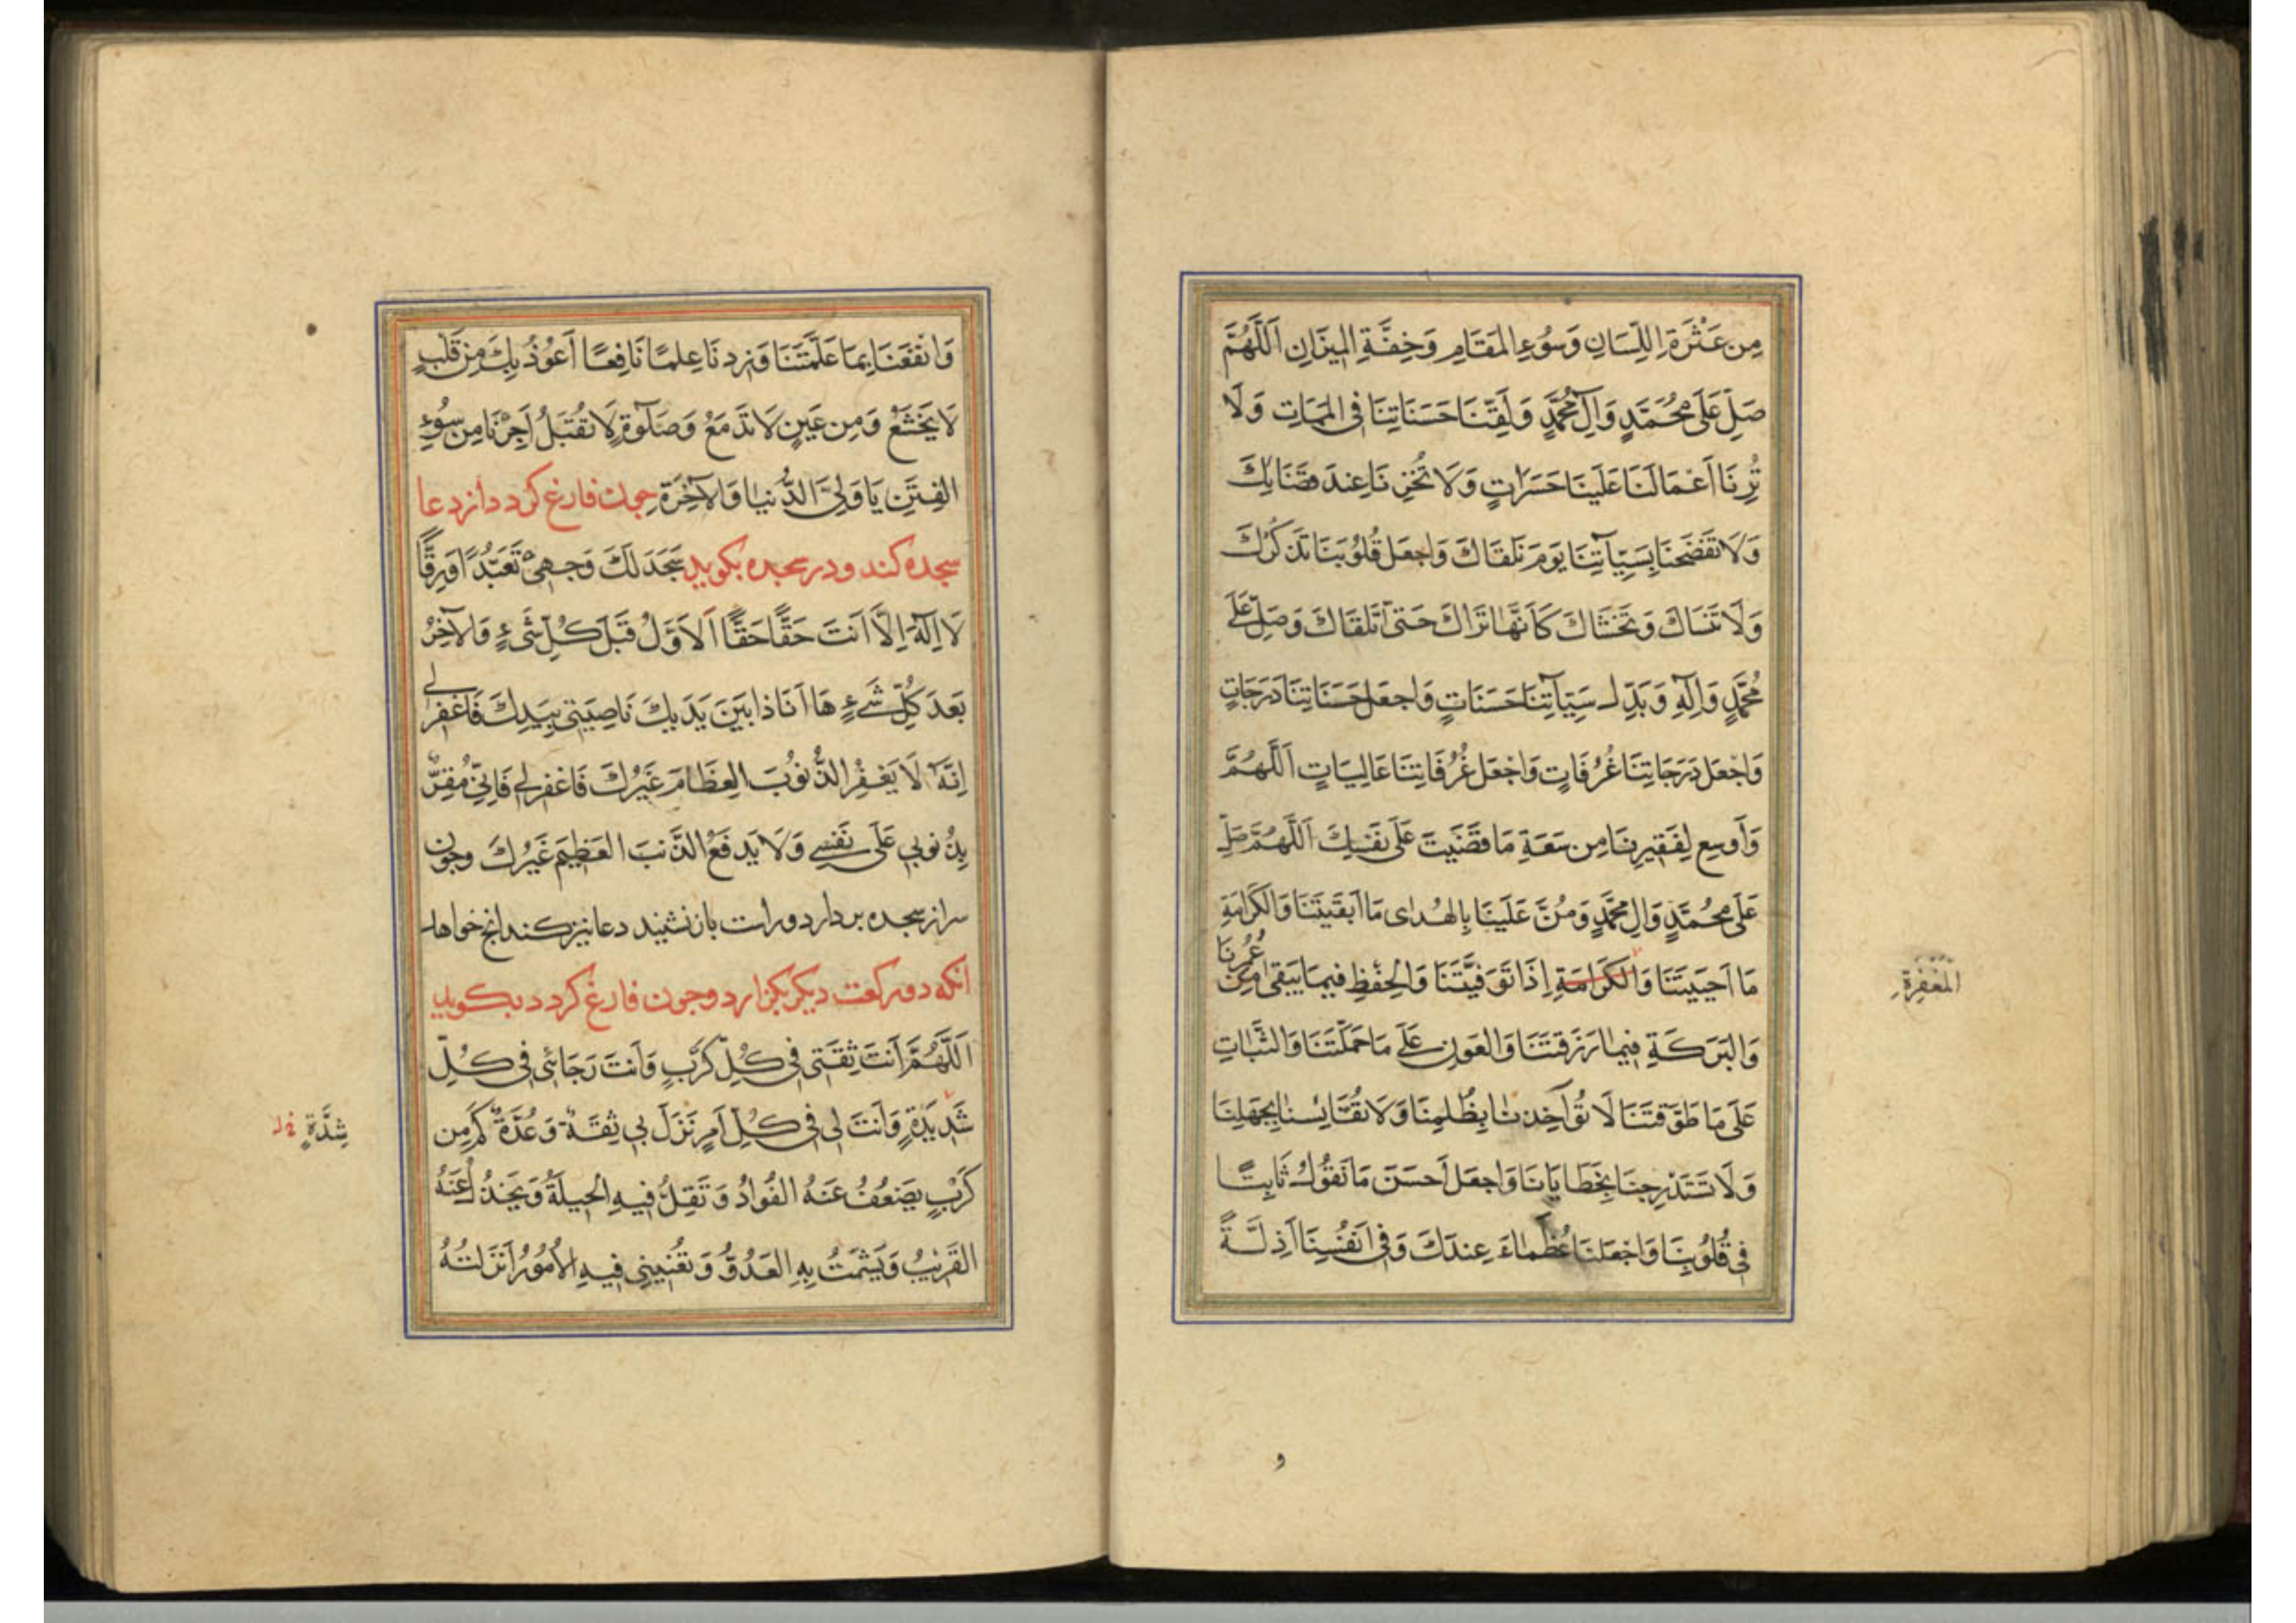 مِن عَثْرَةِ اللِّسَانِ وَسُوءِ المَقَامِ وَخِفَّةِ المِيزَانِ اَللَّهُمَّ
صَلِّ عَلَى مُحَمَّدٍ وَآلِ مُحَمَّدٍ وَلَقِّنَا حَسَنَاتِنَا فِى المَمَاتِ وَلَا
تُرِنَا اَعْمَالَنَا عَلَينَا حَسَرَاتٍ وَلَا تُخْزِنَا عِندَ قَضَائِكَ
وَلَا تَفْضَحنَا بِسَيِّآتِنَا يَومَ نَلقَاكَ وَاجعَل قُلُوبَنَا تَذكُرُكَ
وَلَا تَنسَاكَ وَتَخشَاكَ كَاَنَّهَا تَرَاكَ حَتى تَلقَاكَ وَصَلِّ عَلَى
مُحَمَّدٍ وَآلِهِ وَبَدِّل سَيِّآتِنَا حَسَنَاتٍ وَاجعَل حَسَنَاتِنَا دَرَجَاتٍ
وَاجْعَل دَرَجَاتِنَا غُرُفَاتٍ وَاجْعَل غُرُفَاتِنَا عَالِيَاتٍ اَللَّهُمَّ
وَاَوسِع لِفَقِيرِنَا مِن سَعَةِ مَا قَضَيتَ عَلَى نَفسِكَ اَللَّهُمَّ صَلِّ
عَلَى مُحَمَّدٍ وَالِ مُحَمَّدٍ وَمُنَّ عَلَينَا بِالهُدَاى مَا اَبقَيتَنَا وَالكَرَامَةِ
مَا اَحيَيتَنَا وَالكَرَامَةِ اِذَا تَوَفَّيتَنَا وَالحِفظِ فِيمَا يَبقَى مِن عُمُرِنَا
المَغفِرَةِ
وَالبَرَكَةِ فِيمَا رَزَقتَنَا وَالعَونِ عَلَى مَا حَمَلتَنَا وَالثَّبَاتِ
عَلَى مَا طَوَّقتَنَا لَا تُؤَاخِذنَا بِظُلمِنَا وَلَا تُقَايِسنَا بِجَهلِنَا
وَلَا تَستَدرِجنَا بِخَطَايَانَا وَاجعَل اَحسَنَ مَا نَقُولُ ثَابِتًا
فِى قُلُوبِنَا وَاجْعَلنَا عُظَمَاءَ عِندَكَ وَفِى اَنفُسِنَا اَذِلَّةً
و
وَانفَعنَا بِمَا عَلَّمتَنَا وَزِدنَا عِلمًا نَافِعًا اَعُوذُ بِكَ مِن قَلبٍ
لَا يَخشَعُ وَمِن عَينٍ لَا تَدمَعُ وَصَلٰوةٍ لَا تُقبَلُ اَجِرْنَا مِن سُوءِ
الفِتَنِ يَا وَلِىَّ الدُّنيَا وَالآخِرَةِ چون فارغ كردد از دعا
سجده كند و در سجده بكويد سَجَدَ لَكَ وَجهِىَ تَعَبُّدًا وَرِقًّا
لَا اِلٰهَ اِلَّا اَنتَ حَقًّا حَقًّا اَلاَوَّلُ قَبلَ كُلِّ شَىءٍ وَالآخِرُ
بَعدَ كُلِّ شَىءٍ هَا اَنَا ذَا بَينَ يَدَيكَ نَاصِيَتِى بِيَدِكَ فَاغفِرلِى
اِنَّهُ لَا يَغفِرُ الذُّنُوبَ العِظَامَ غَيرُكَ فَاغفِرلِى فَاِنِّى مُقِرٌّ
بِذُنُوبِى عَلَى نَفسِى وَلَا يَدفَعُ الذَّنبَ العَظِيمَ غَيرُكَ وچون
سر از سجده بر دارد و راست باز نشيند دعا نيز كند انچ خواهد
انكه دو ركعت ديكر بكزارد و چون فارغ كردد بكويد
اَللَّهُمَّ اَنتَ ثِقَتِى فِى كُلِّ كَربٍ وَاَنتَ رَجَائِى فِى كُلِّ
شَدِيدَةٍ وَاَنتَ لِى فِى كُلِّ اَمرٍ نَزَلَ بِى ثِقَةٌ وَعُدَّةٌ كَم مِن
شِدَّةٍ
كَربٍ يَضعُفُ عَنهُ الفُوَادُ وَتَقِلُّ فِيهِ الحِيلَةُ وَيَخذُلُ عَنهُ
القَرِيبُ وَيَشمَتُ بِهِ العَدُوُّ وَتُعنِينِى فِيهِ الاُمُورُ اَنزَلتُهُ